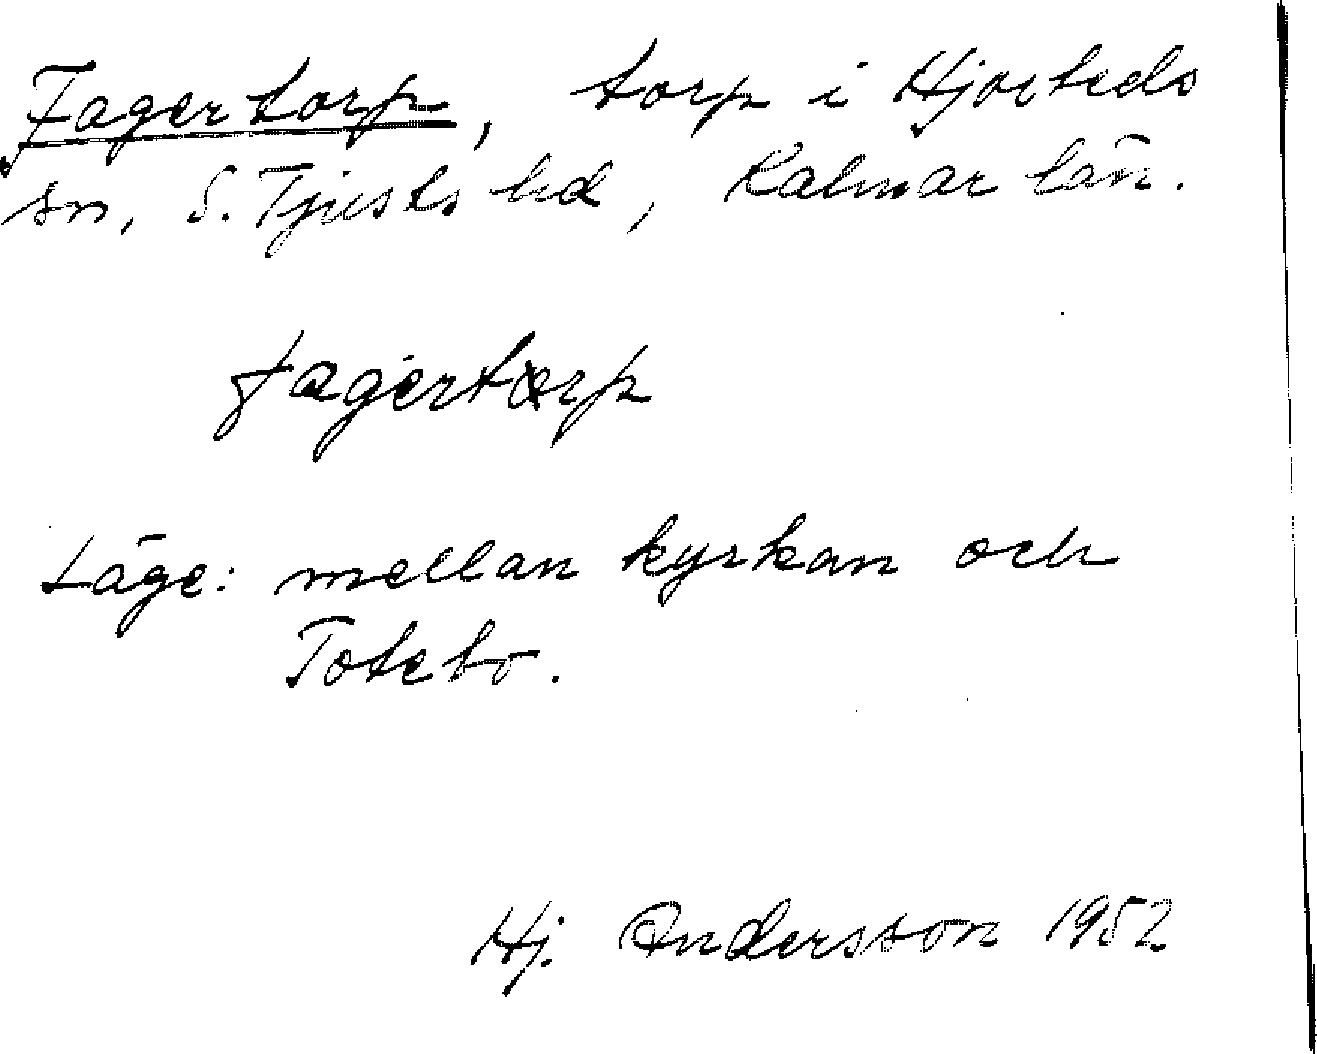 Fagertorp, torp i Hjorteds
sn, S. Tjusts hd, Kalmar län.
fagertorp
Läge: mellan kyrkan och
Totebo.
Hj. Andersson 1952